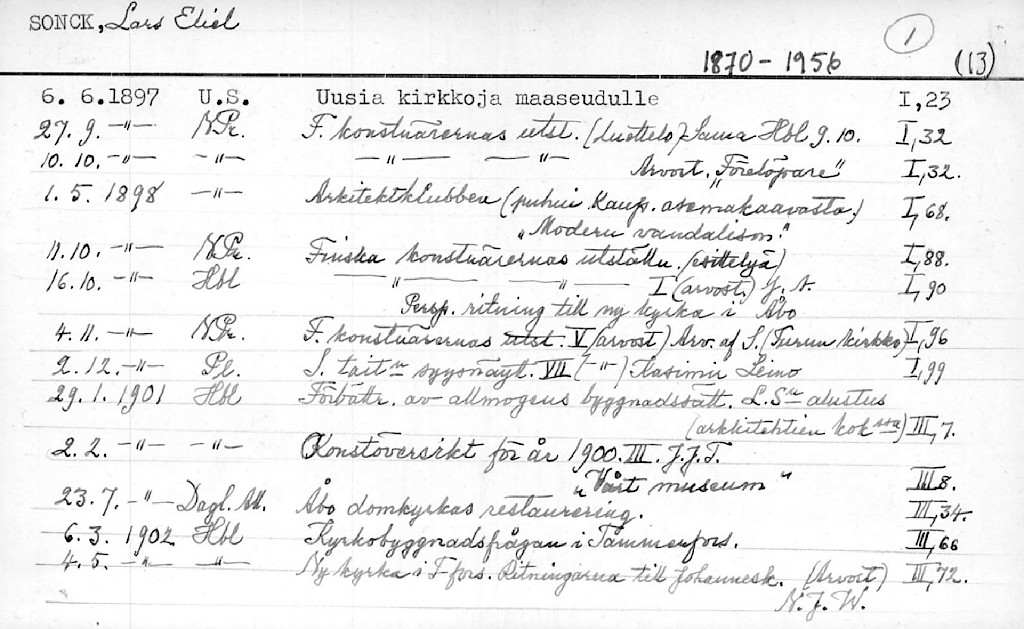 SONCK, Lars Eliel
1
1870-1956 (13)
6. 6.1897 U.S. Uusia kirkkoja maaseudulle I,23
27. 9. -"- N.Pr. F. konstnärernas utst. (Luettelo) Sama Hbl 9.10. I,32
10.10. -"- -"- -"- -"-
Arvost. "Förelöpare" I,32.
1. 5. 1898 -"- Arkitektklubben (puhui kaup. asemakaavasta.) I,68.
"Modern vandalism."
11.10. -"- N.Pr. Finska konstnärernas utställn. (esittelyä) I,88.
16.10. -"- Hbl -"- -"- I (arvost.) J. A. I,90
Persp. ritning till ny kyrka i Åbo
4.11. -"- N.Pr. F. konstnärernas utst. V (arvost) Arv. af S. (Turun kirkko) I,96
2.12. -"- Pl. S. tait:n syysnäyt. VII (-"-) Kasimir Leino I,99
29.1.1901 Hbl Förbättr. av allmogens byggnadssätt. L.S:n alustus
(arkkitehtien kok:ssa) III,7.
2.2. -"- -"- Konstöversikt för år 1900. III. J.J.T.
"Vårt museum" III,8.
23.7. -"- Dagl. All. Åbo domkyrkas restaurering. III,34.
6.3. 1902 Hbl Kyrkobyggnadsfrågan i Tammerfors. III,66
4.5. -"- -"- Ny kyrka i T-fors. Ritningarna till Johannesk. (Arvost) III,72.
N.J.W.